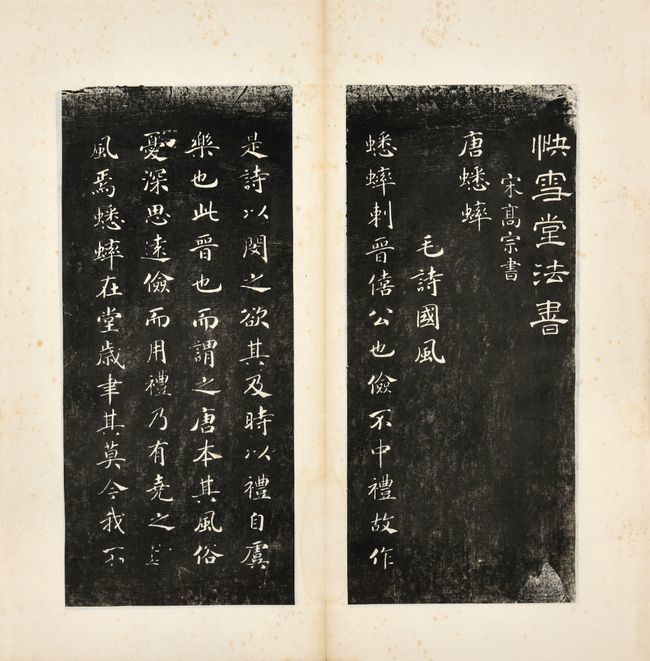 快雪堂法書
宋髙宗書
唐蟋蟀
毛詩國風
蟋蟀刺晉僖公也儉不中禮故作
是詩以閔之欲其及時以禮自虞
樂也此晉也而謂之唐本其風俗
憂深思遠儉而用禮乃有堯之
風焉蟋蟀在堂歲聿其莫今我不